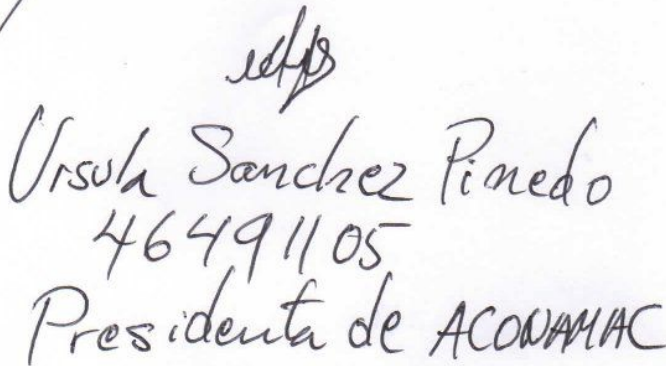 Ursula Sanchez Pinedo
46491105
Presidenta de ACONAMAC